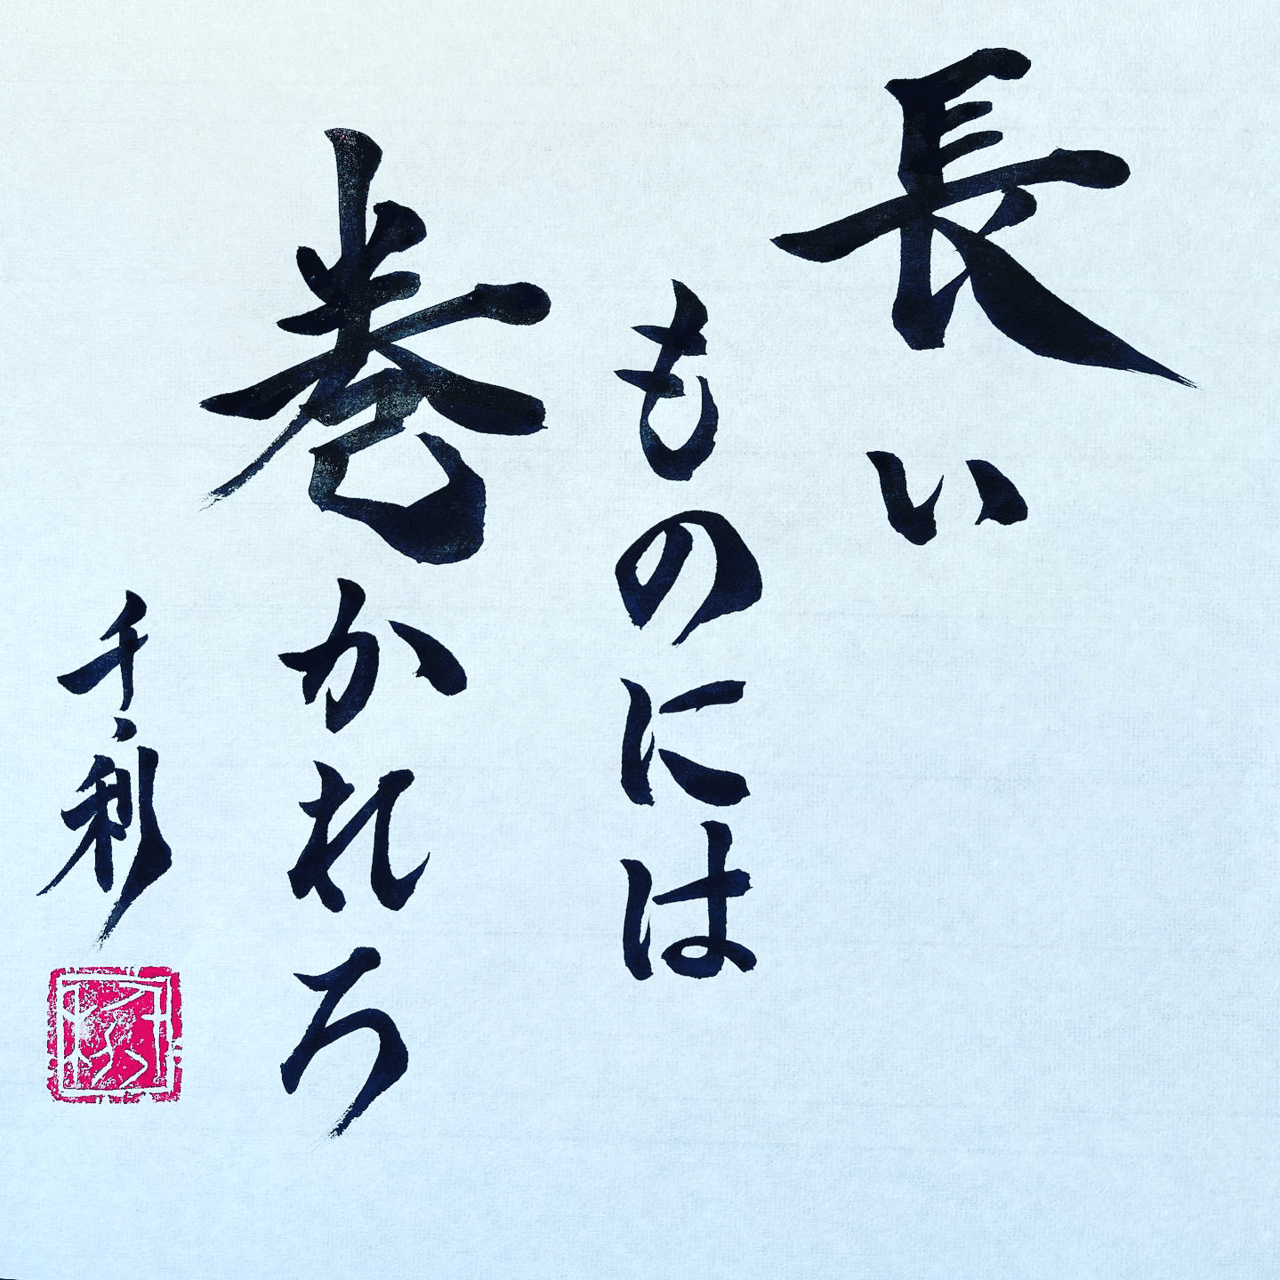 長い
ものには
巻かれろ
千利